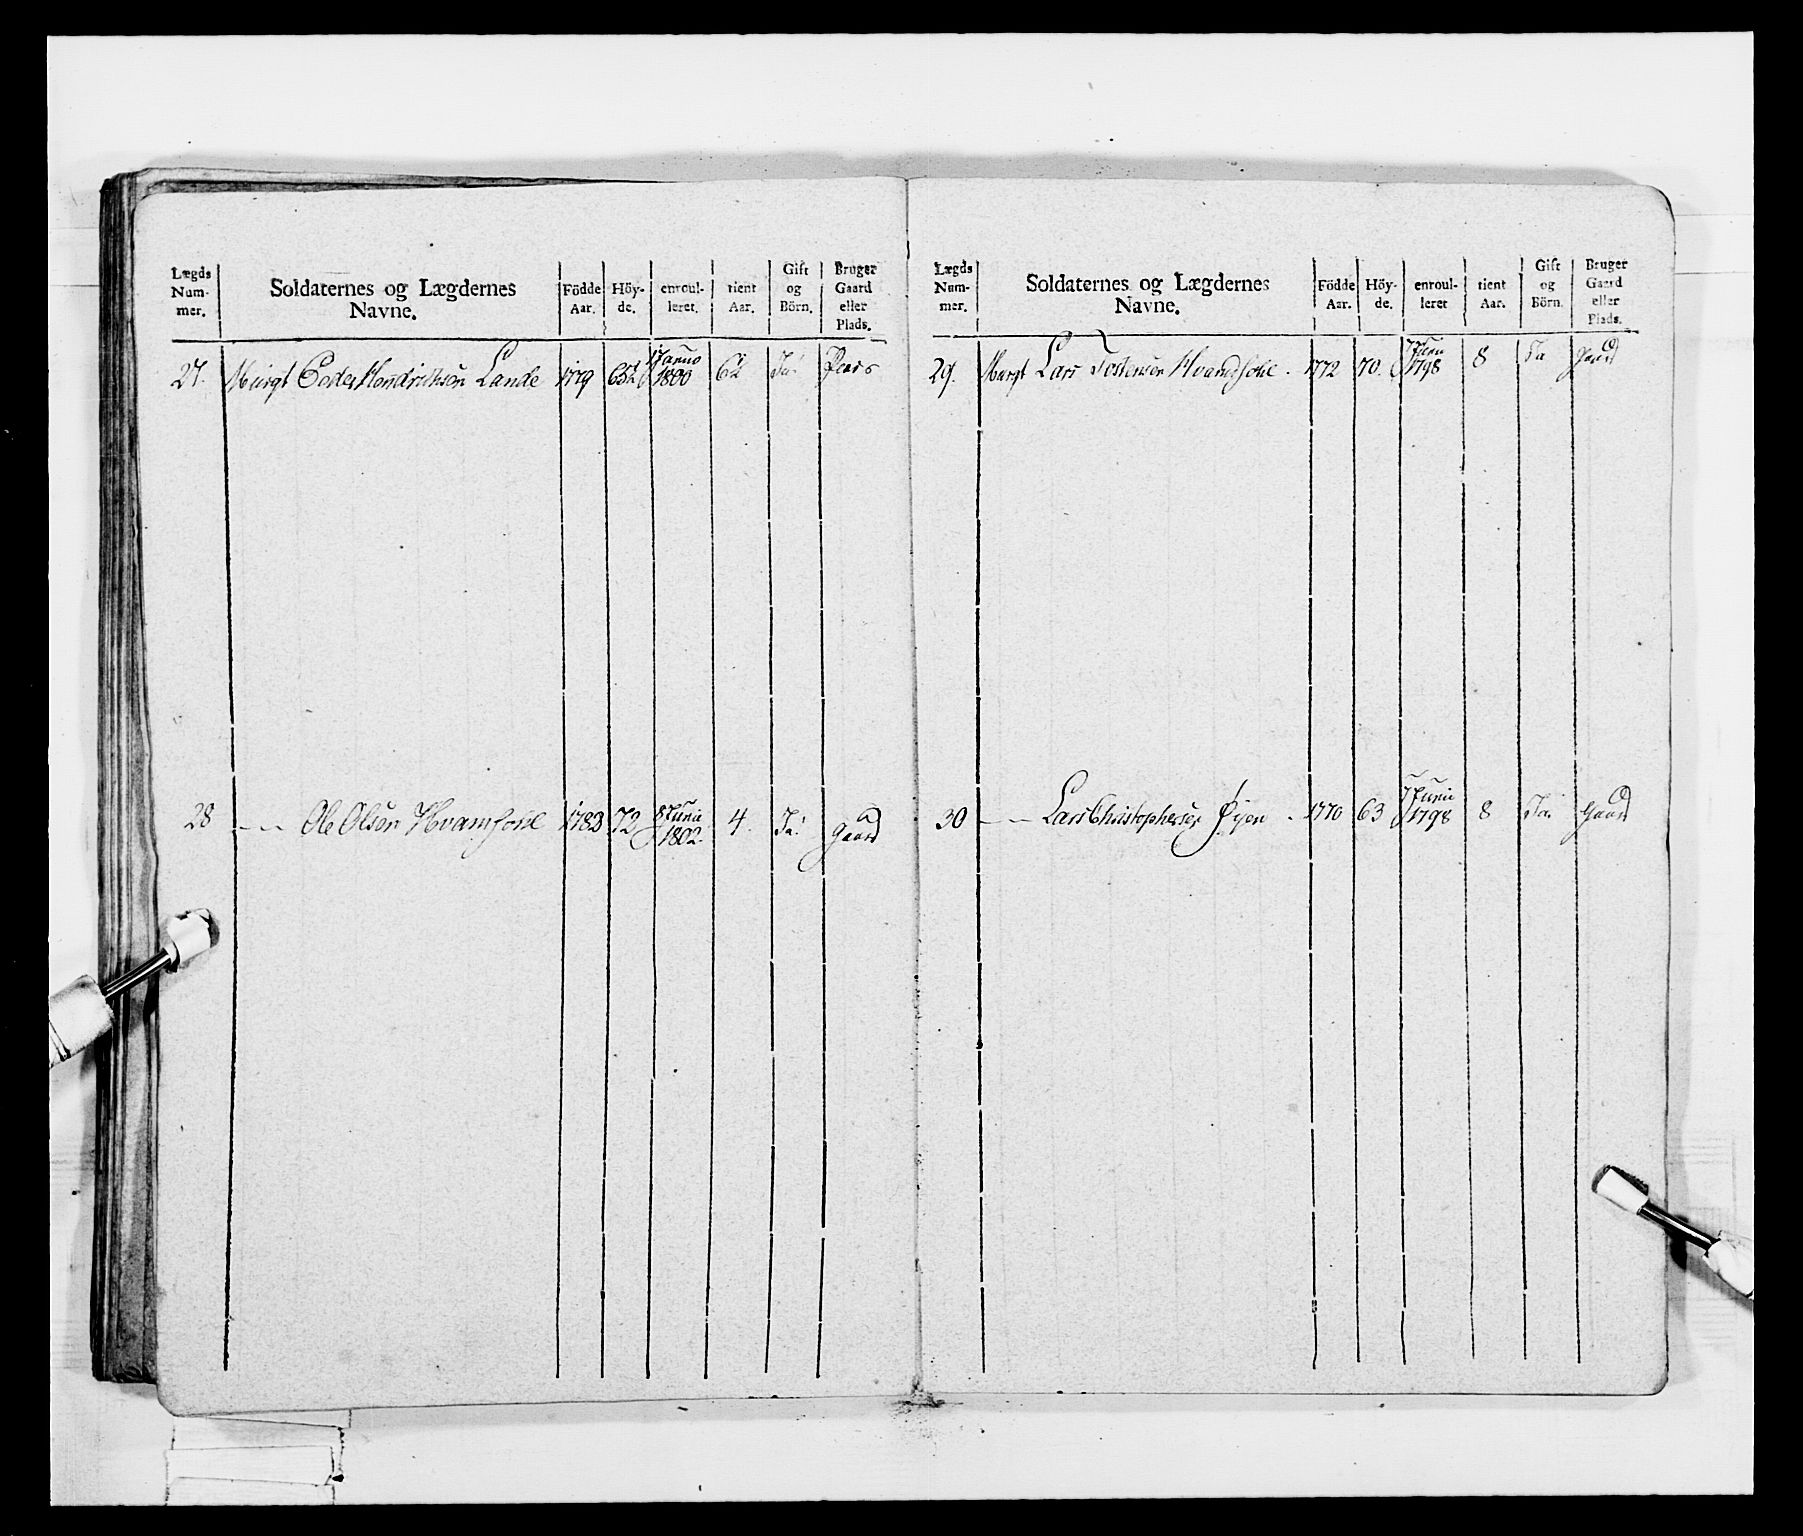 Lægds Num- mer. Soldaternes og Lægdernes Navne. Födde Aar. Höy- de. enroul- leret. tient Aar. Gift og Börn. Bruger Gaard eller Plads.
27. Peder Hendrichsön Lande 1779 63½ 1800 6½ Ja.
28 — — Ole Olsön 1783 72 8 Junii 1802. 4. Ja. Gaard
Lægds Num- mer. Soldaternes og Lægdernes Navne. Födde Aar. Höy- de. enroul- leret tient Aar. Gift og Börn. Bruger Gaard eller Plads.
29. Lars Tostensön 1772 70. 7 Juni 1798 8 Ja Gaard
30 — — Lars Christophersen Öyen 1770 63 7 Junii 1798 8 Ja Gaard